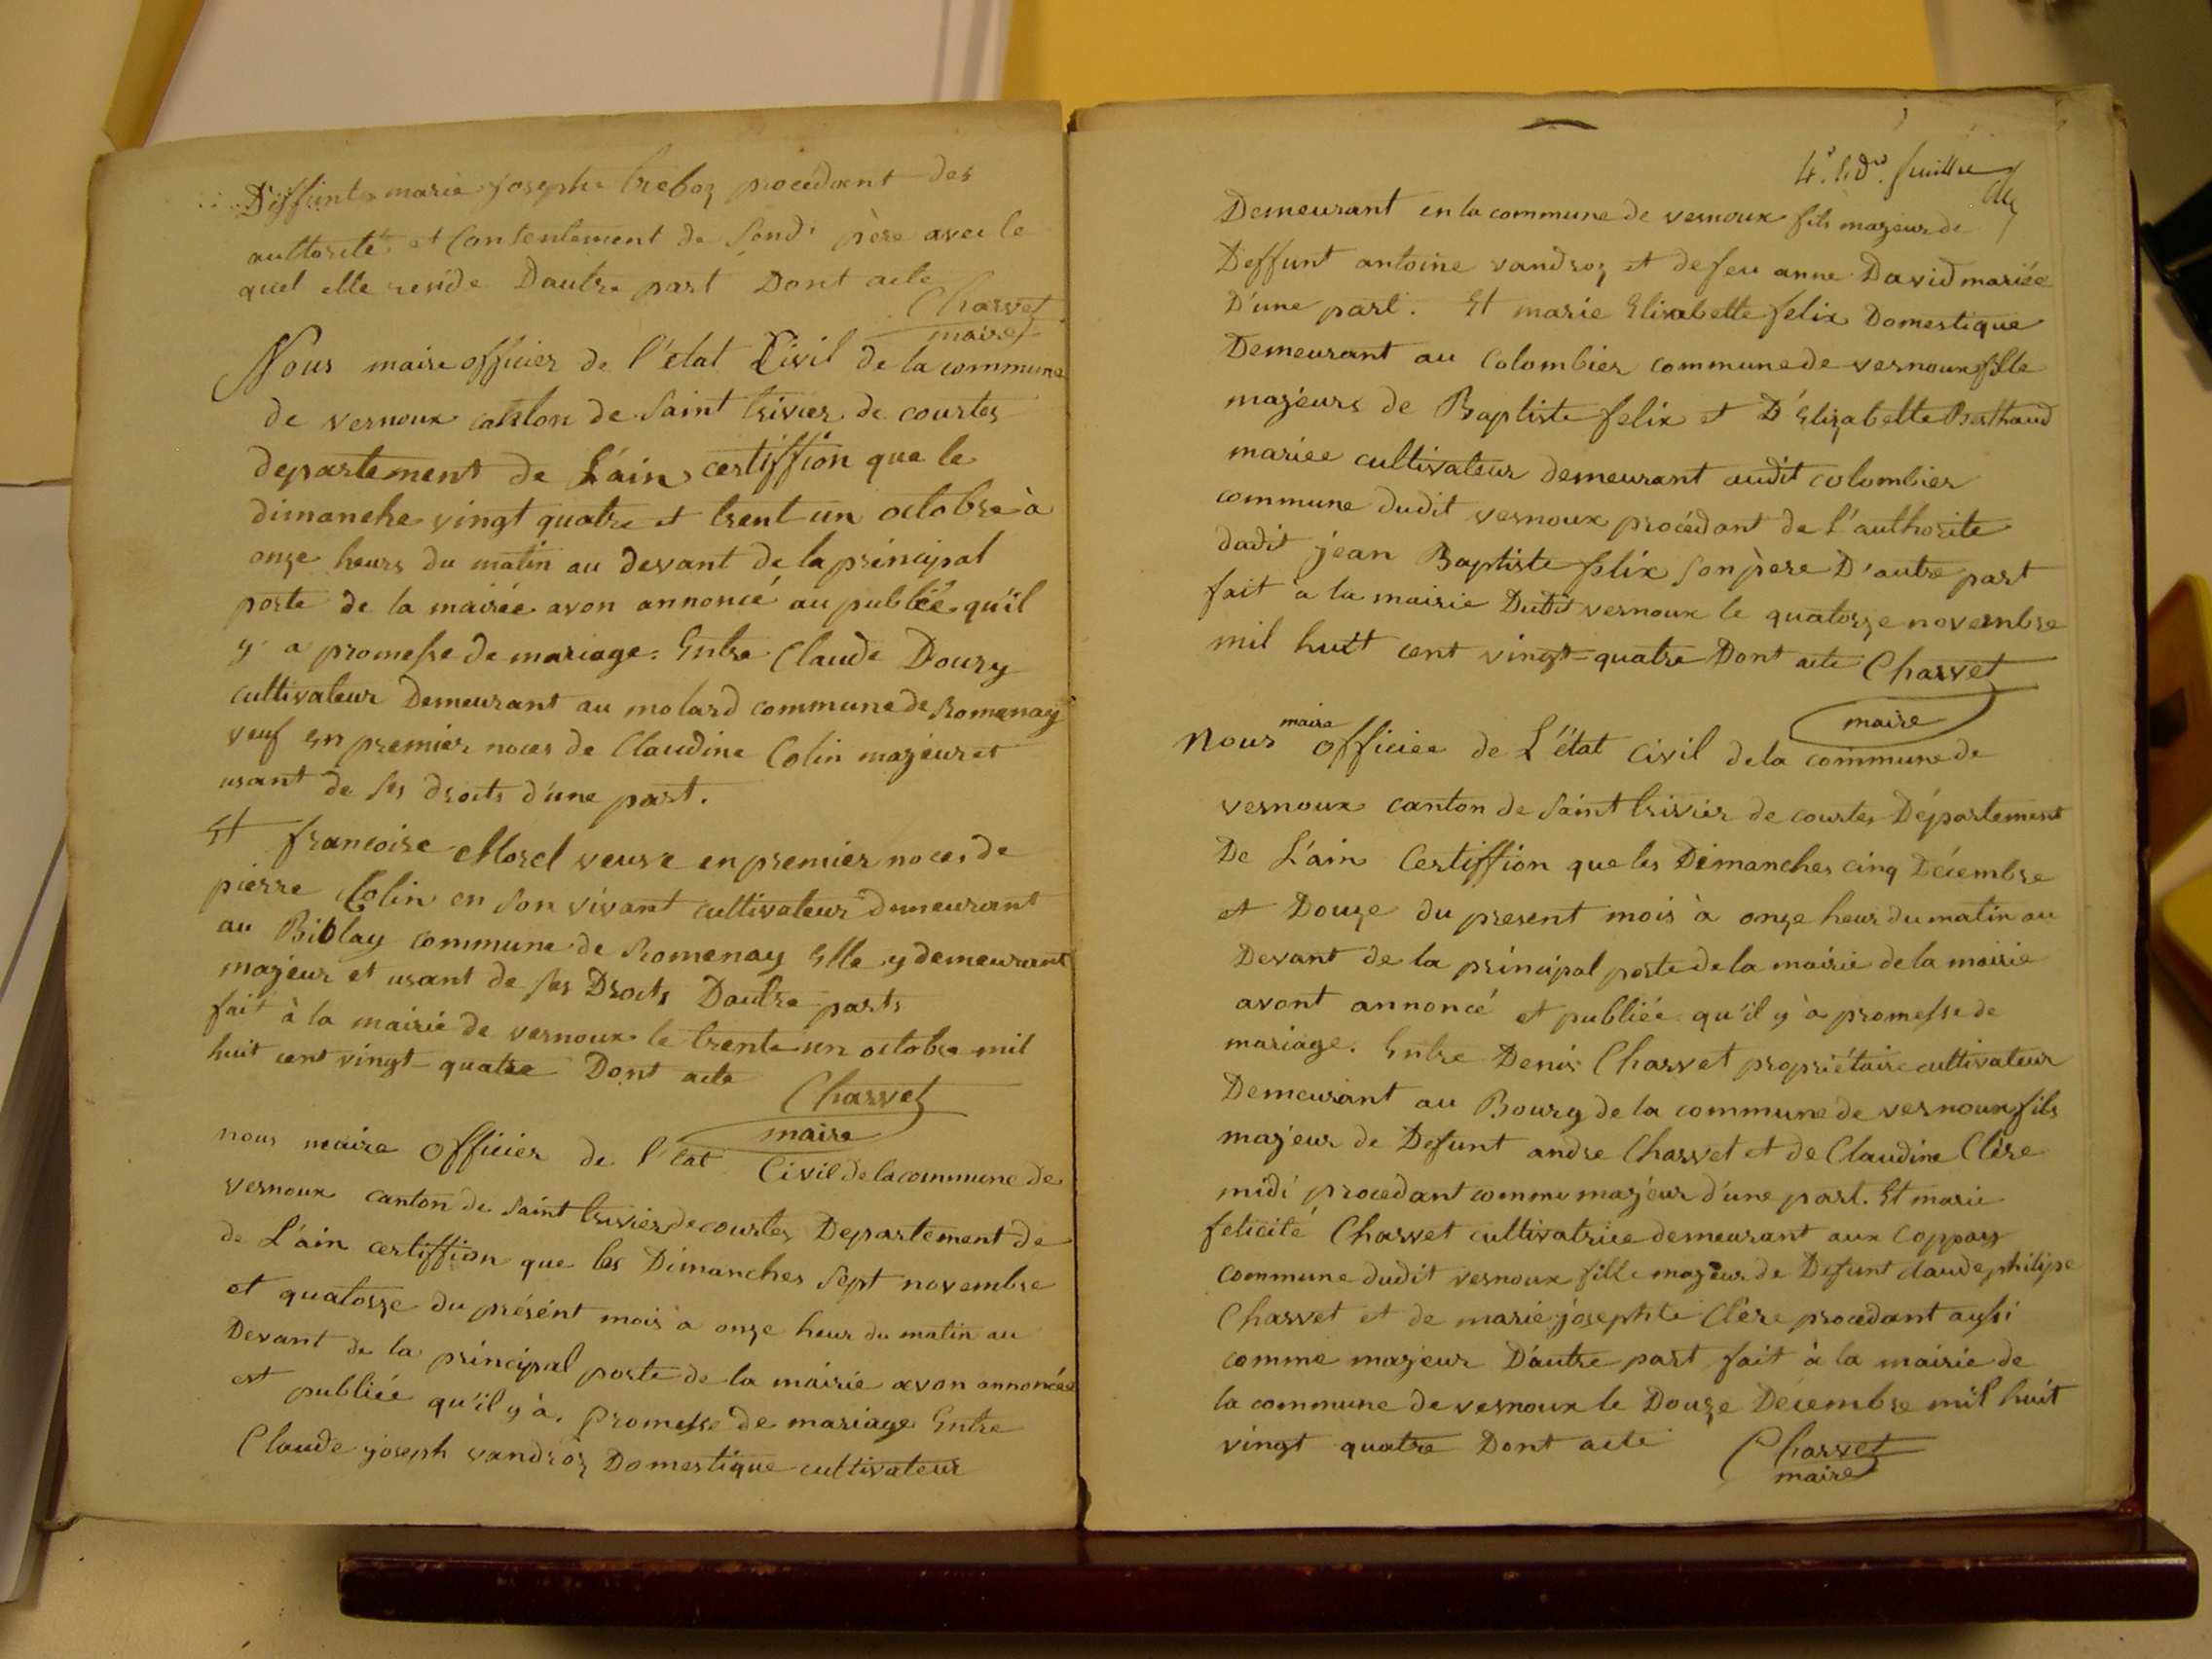 Deffunte marie josephe treboz procedant des
authorité et Contentement de Sond. père avec le
quel elle reside Dautre part Dont acte
Charvet
maire
Nous maire officier de l'état Civil de la commune
de vernoux canton de Saint trivier de courtes
departement de L'ain certiffion que le
dimanche vingt quatre et trent un octobre à
onze heurs du matin au devant de la principal
porte de la mairée avon annoncé au publiée qu'il
y a promesse de mariage. Entre Claude Doury
cultivateur Demeurant au molard commune de Romenay
veuf en premier noces de Claudine Colin majeur et
usant de ses droits d'une part.
Et francoise Morel veuve en premier noces de
pierre Colin en son vivant cultivateur demeurant
au Biolay commune de Romenay Elle y demeurant
majeur et usant de ses Droits Dautre parts
fait à la mairie de vernoux le trente un octobre mil
huit cent vingt-quatre Dont acte
Charvet
maire
nous maire officier de l'état Civil de la commune de
vernoux canton de Saint trivier de courtes Departement de
de L'ain certiffion que les Dimanches Sept novembre
et quatorze du présent mois à onze heur du matin au
Devant de la principal porte de la mairie avon annoncée
et publiée qu'il y à. Promesse de mariage Entre
Claude joseph vandroz Domestique cultivateur
4e. feuillie
Demeurant en la commune de vernoux fils majeur de
Deffunt antoine vandroz et de feu anne David mariée
D'une part. Et marie Elisabette felix Domestique
Demeurant au Colombier commune de vernoux fille
majeurs de Baptiste felix et D'Elizabette Berthaud
mariee cultivateur demeurant audit colombier
commune dudit vernoux procédant de L'authorite
dudit jean Baptiste felix son père D'autre part
fait a la mairie Dudit vernoux le quatorze novembre
mil huit cent vingt-quatre Dont acte Charvet
maire
Nous maire officiee de L'état civil de la commune de
vernoux canton de Saint trivier de courtes Département
De L'ain Certiffion que les Dimanches cinq Décembre
et Douze du present mois à onze heur du matin au
Devant de la principal porte de la mairie de la mairie
avont annoncé et publiée qu'il y à promesse de
mariage. Entre Denis Charvet propriétaire cultivateur
Demeurant au Bourg de la commune de vernoux fils
majeur de Defunt andre Charvet et de Claudine Clère
midi procedant comme majeur d'une part. Et marie
felicité Charvet cultivatrice demeurant aux Coppays
commune dudit vernoux fille majeur de Defunt claude philipe
Charvet et de marie josephte Clère procedant aussi
comme majeur D'autre part fait à la mairie de
la commune de vernoux le Douze Décembre mil huit
vingt quatre Dont acte
Charvet
maire